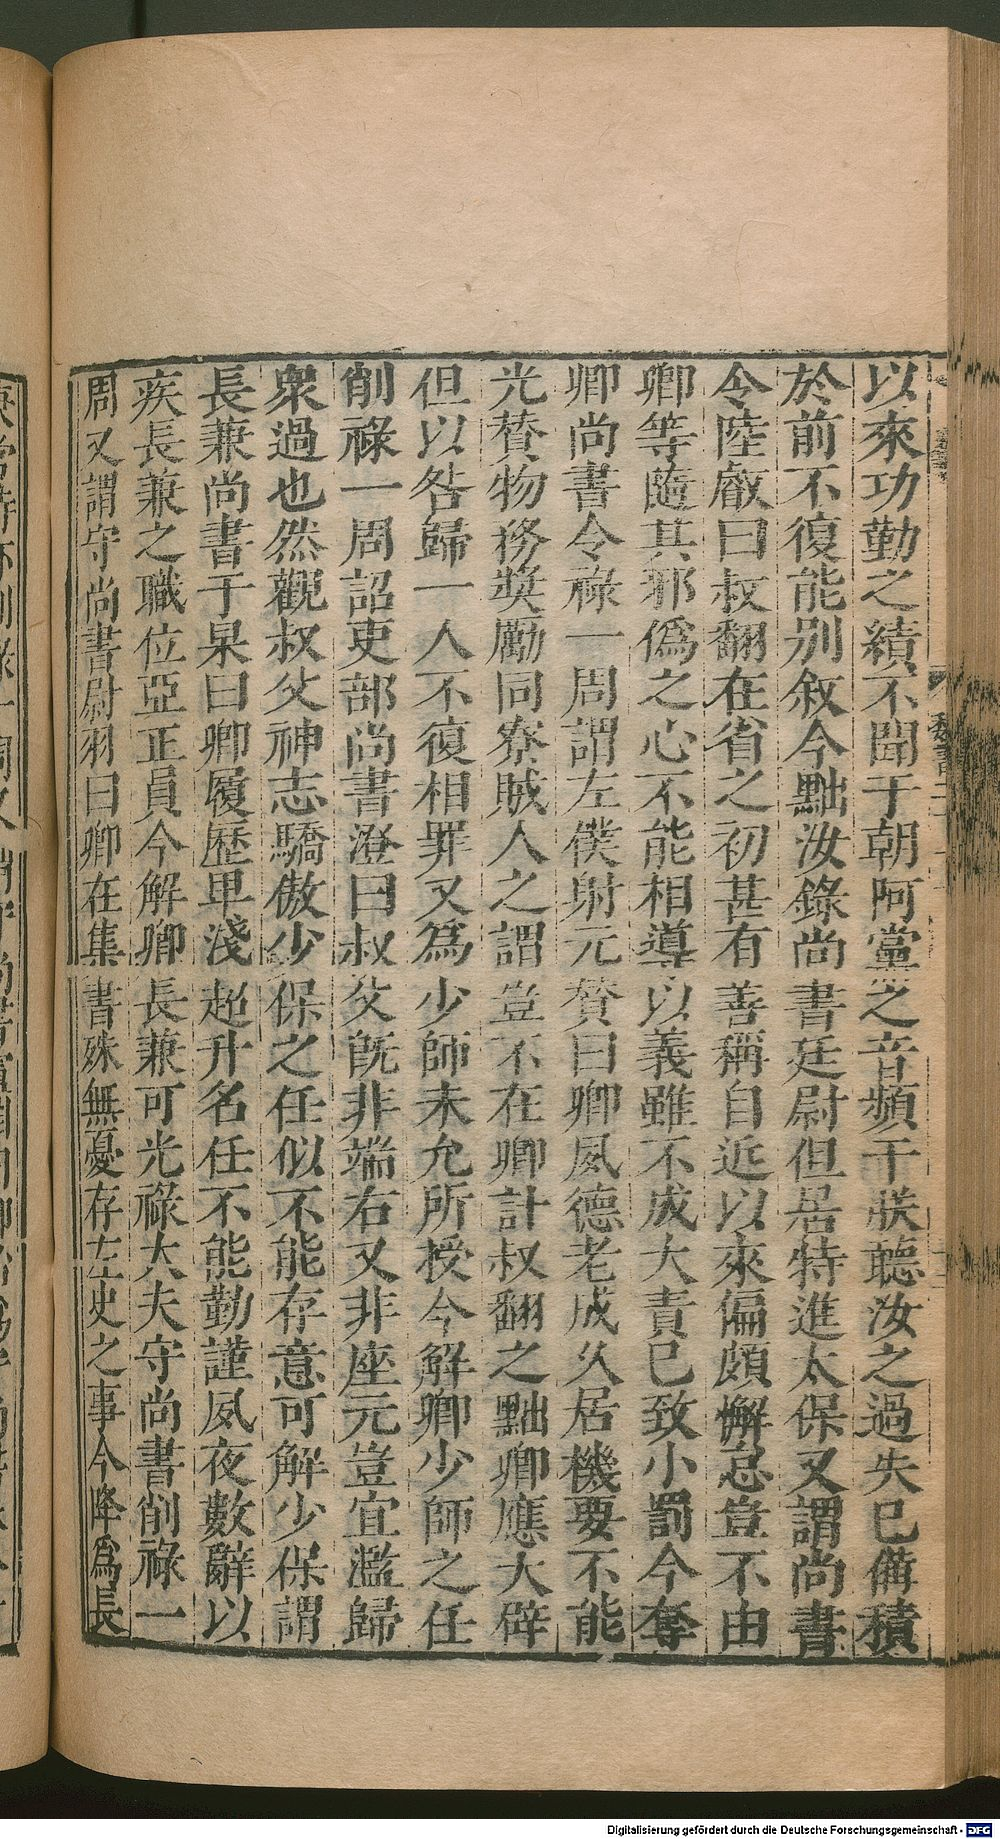 以來功勤之績不聞于朝阿黨之音頻干朕聽汝之過失已備積
於前不復能別敘今黜汝錄尚書廷尉但居特進太保又謂尚書
令陸叡曰叔翻在省之初甚有善稱自近以來偏頗懈怠豈不由
卿等隨其邪偽之心不能相導以義雖不成大責已致小罰今奪
卿尚書令祿一周謂左僕射元贊曰卿夙德老成久居機要不能
光贊物務獎勵同寮賊人之謂豈不在卿計叔翻之黜卿應大辟
但以咎歸一人不復相罪又為少師未允所授今解卿少師之任
削祿一周詔吏部尚書澄曰叔父既非端右又非座元豈宜濫歸
衆過也然觀叔父神志驕傲少保之任似不能存意可解少保謂
長兼尚書于杲曰卿履歷卑淺超升名任不能勤謹夙夜數辭以
疾長兼之職位亞正員今解卿長兼可光祿大夫守尚書削祿一
周又謂守尚書尉羽曰卿在集書殊無憂存左史之事今降為長
Digitalisierung gefördert durch die Deutsche Forschungsgemeinschaft - DFG